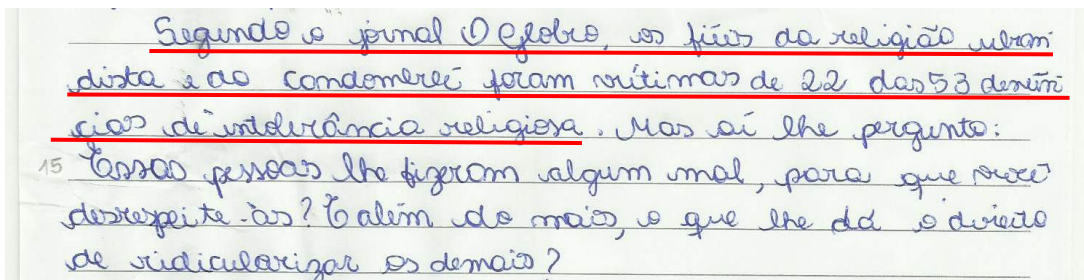 Segundo o jornal O Globo, os fiéis da religião uban
dista e do condomblé foram vítimas de 22 das 53 denún
cias de intolerância religiosa. Mas aí lhe pergunto:
15 Essas pessoas lhe fizeram algum mal, para que você
desrespeite-às? E além do mais, o que lhe dá o direito
de ridicularizar os demais?